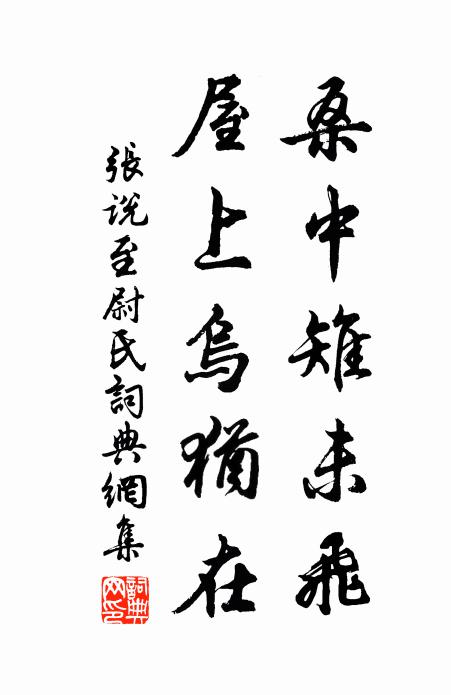 桑中雉未飛
屋上烏猶在
張說至尉氏詞典網集
詞典網印